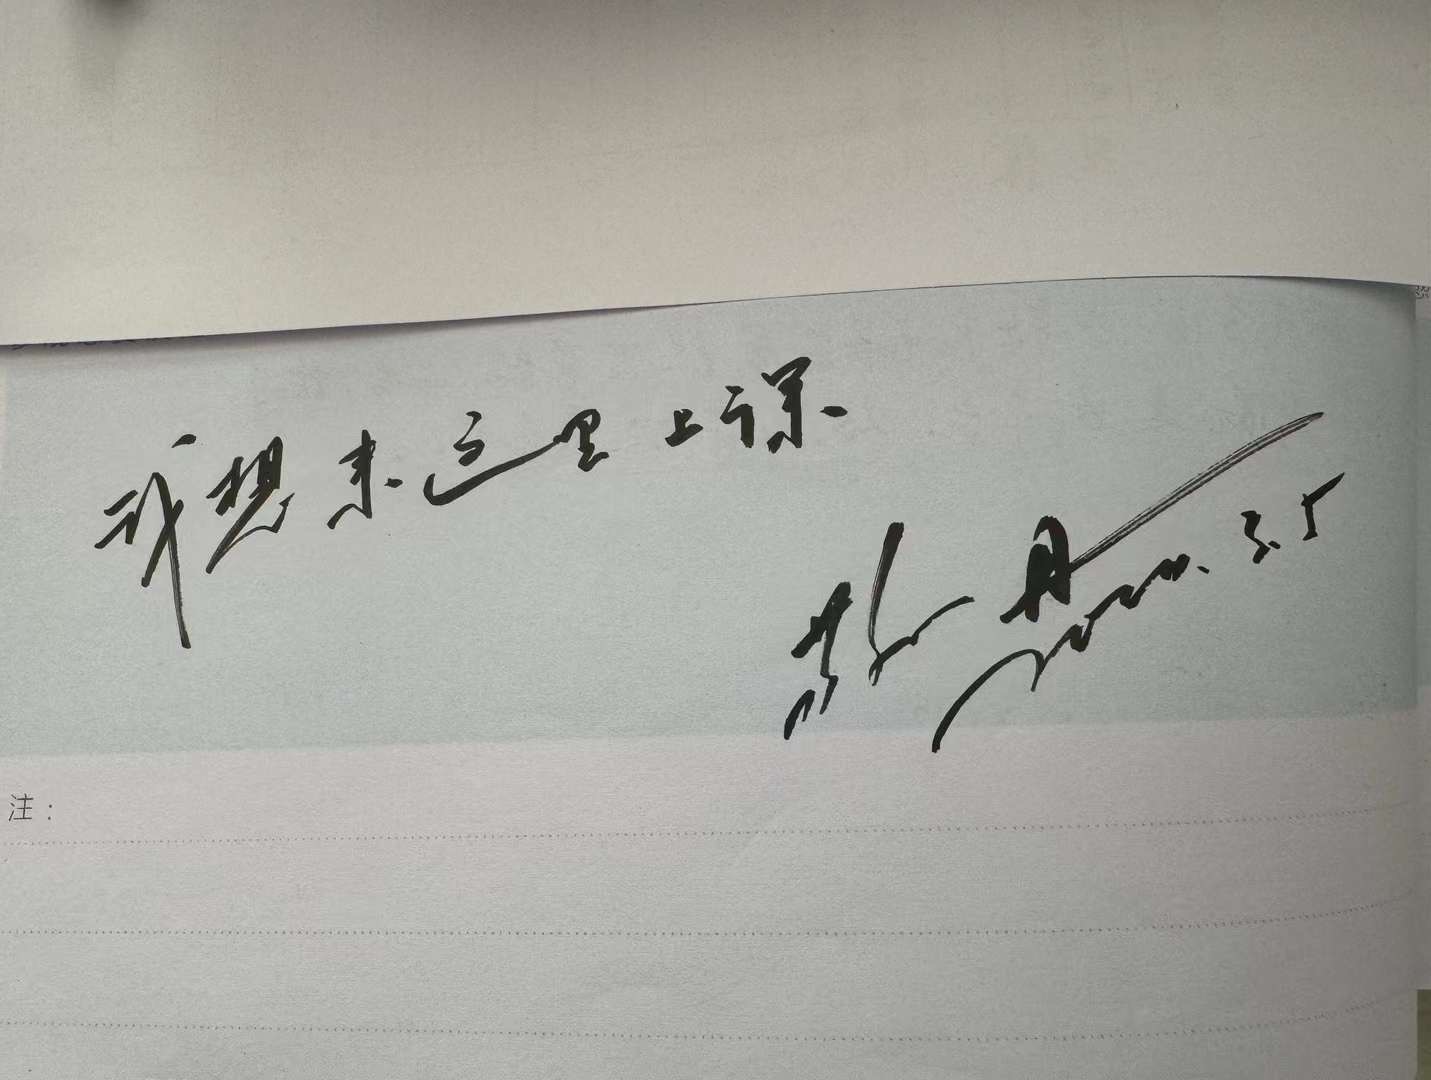 我想来这里上课.
张丹
3.5
注：